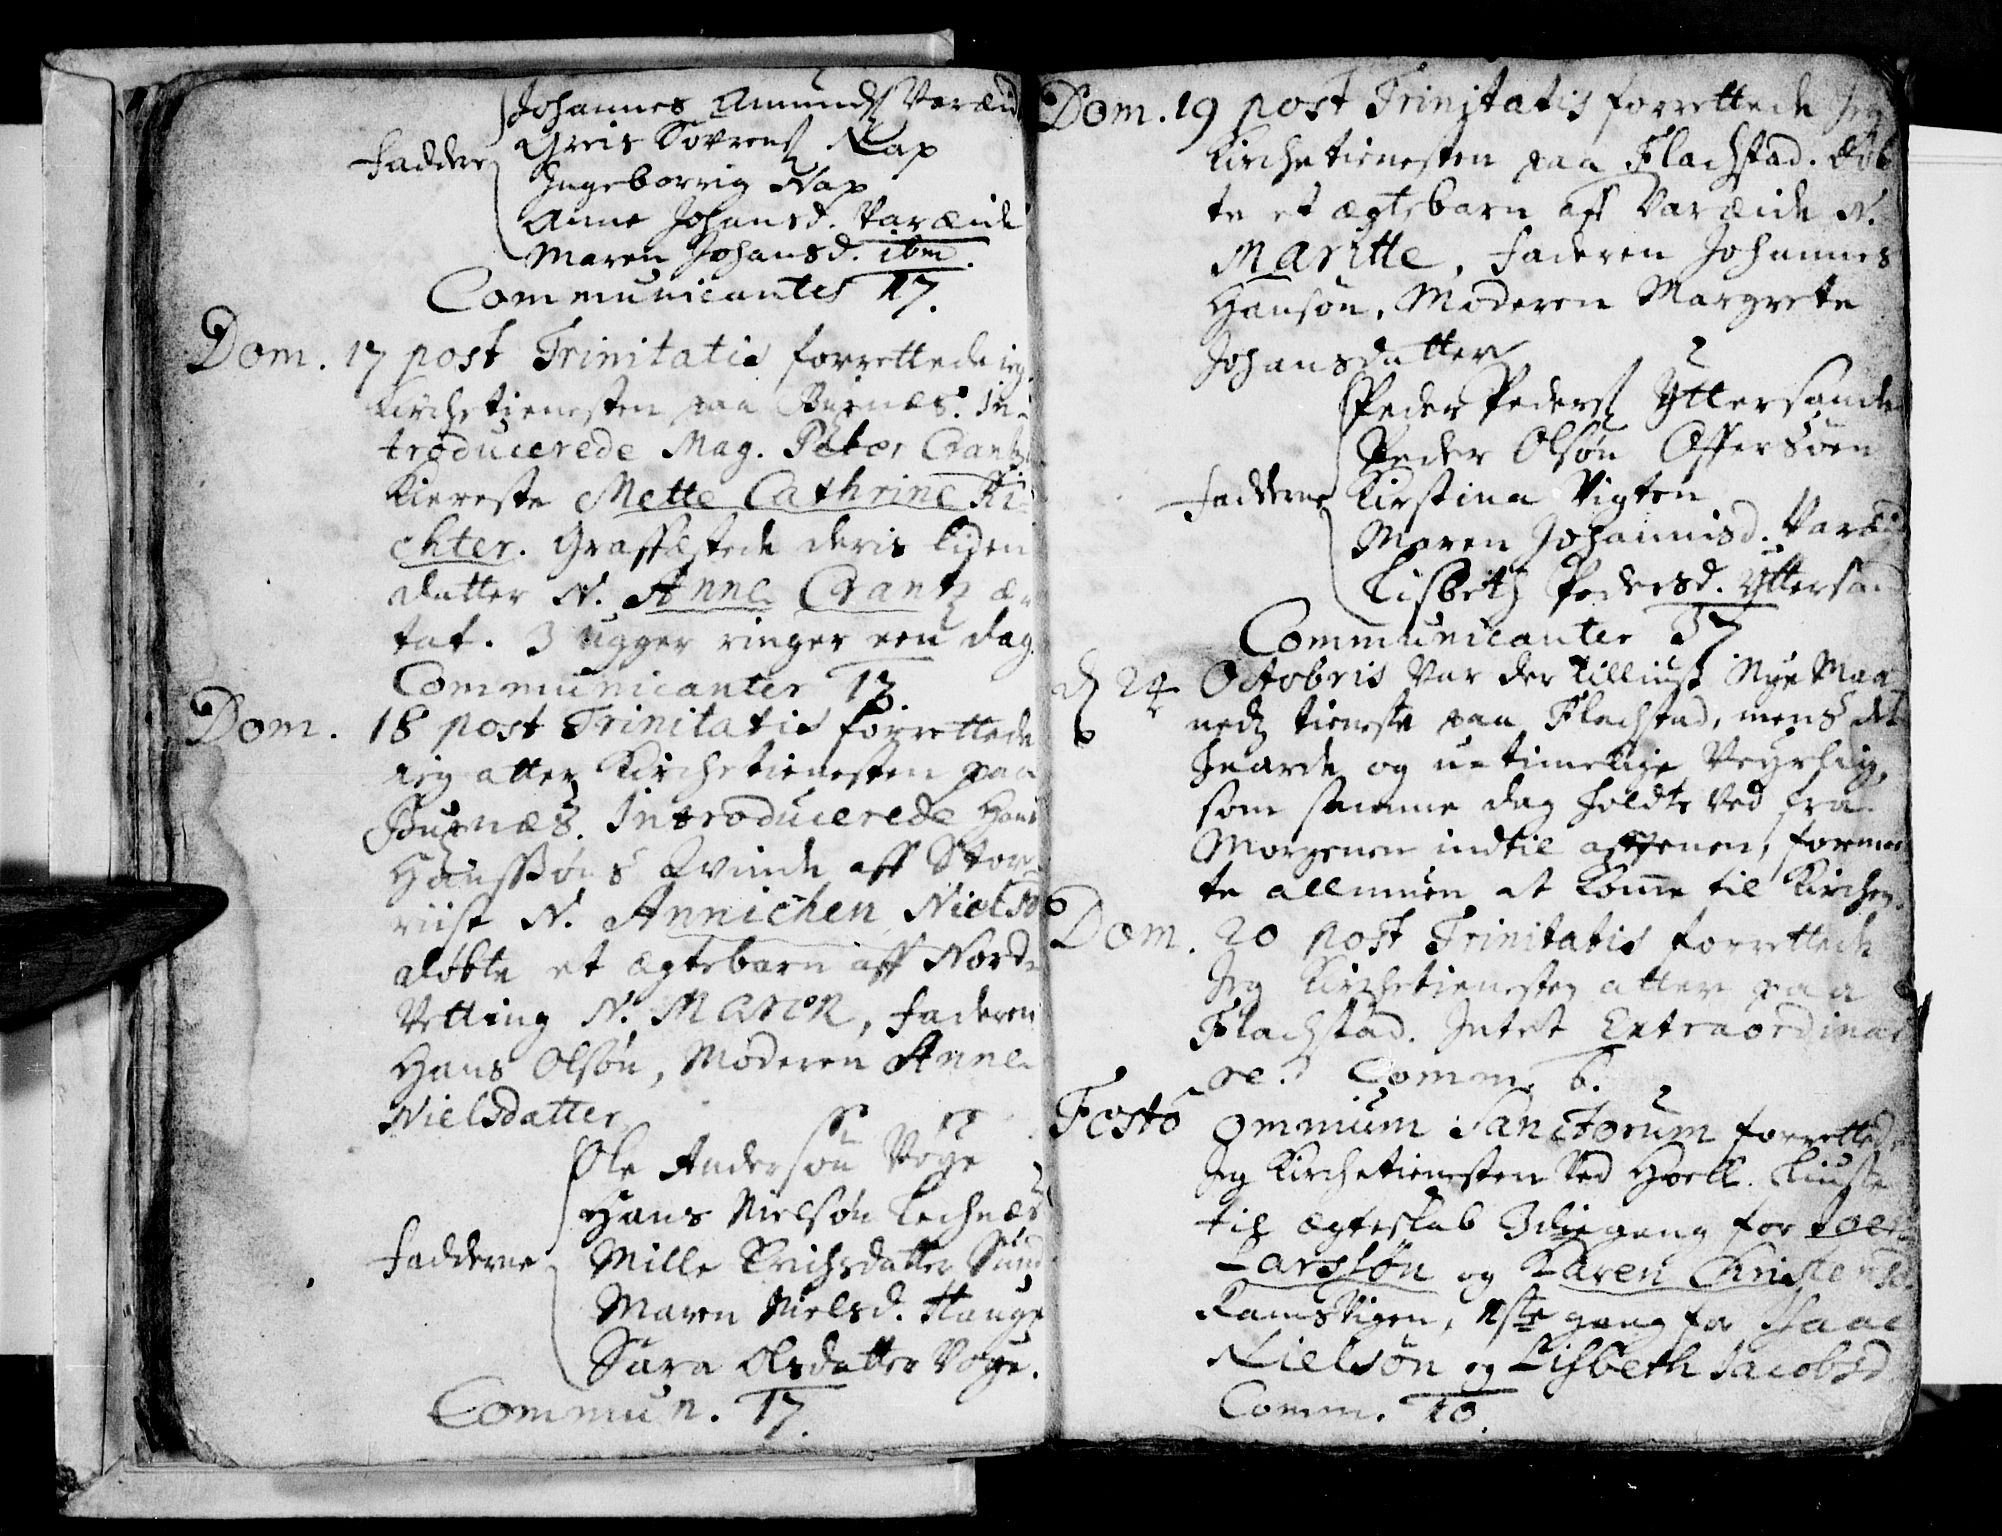 Johannes Amunds Varæid
Greis Sørrens Nap
Faddere
Ingeborrig Nap
Anne Johansd. Varæide
Maren Johansd. ibm.
Communicantes 17.
Dom. 17 post Trinitatis forrettede ieg
Kirchetienesten paa Buxnæs. In-
troducerede Mag. Peter Crantz
Kiereste Mette Cathrine Ri-
chter. Graffæstede deris liden
datter N. Anne Crantz æ-
tat. 3 ugger ringer een dag.
Communicanter 13
Dom. 18 post Trinitatis forrettede
ieg atter Kirchetienesten paa
Buxnæs. Introducerede Hans
Hanssøns Qvinde aff Stor-
riise N. Annichen Nielsd
døbte et ægtebarn aff Nord-
Vetting N. Maren, faderen
Hans Olsøn, Moderen Anne
Nielsdatter
Ole Andersøn Voge
Hans Nielsøn Lechnæs
Fadderne
Mille Erichsdatter Sund
Maren Nielsd. Hauge
Sara Olsdatter Voge.
Commun. 17.
Dom. 19 post Trinitatis forrettede Jeg
Kirchetienesten paa Flachstad. Døb-
te et ægtebarn aff Varæide N.
Maritte, faderen Johannes
Hansøn, Moderen Margrete
Johansdatter
Peder Peders Yttersande
Peder Olsøn Offersøen
Fadderne
Kirstina Vigten
Maren Johannisd. Varæid
Lisbeth Pedersd. Yttersand
Communicanter 37
d 24 Octobris Var der tilliust Nye Maa
neds tieneste paa Flachstad, mens det
haarde og utimelige Veyrlig,
som samme dag holdte ved fra
Morgenen indtil afftenen, formeen
te allmuen at komme til Kirchen.
Dom. 20 post Trinitatis forrettede
Jeg Kirchetienesten atter paa
Flachstad. Intet Extraordinai
re. Comm. 6.
Festo omnium Sanctorum forrettede
Jeg Kirchetienesten ved Hoell. Liuste
til ægteskab 3die gang for
Larssøn og Karen Christensd.
Ramsvigen, 1ste gang for Isaac
Nielsøn og Lisbeth Jacobsd
Comm. 10.